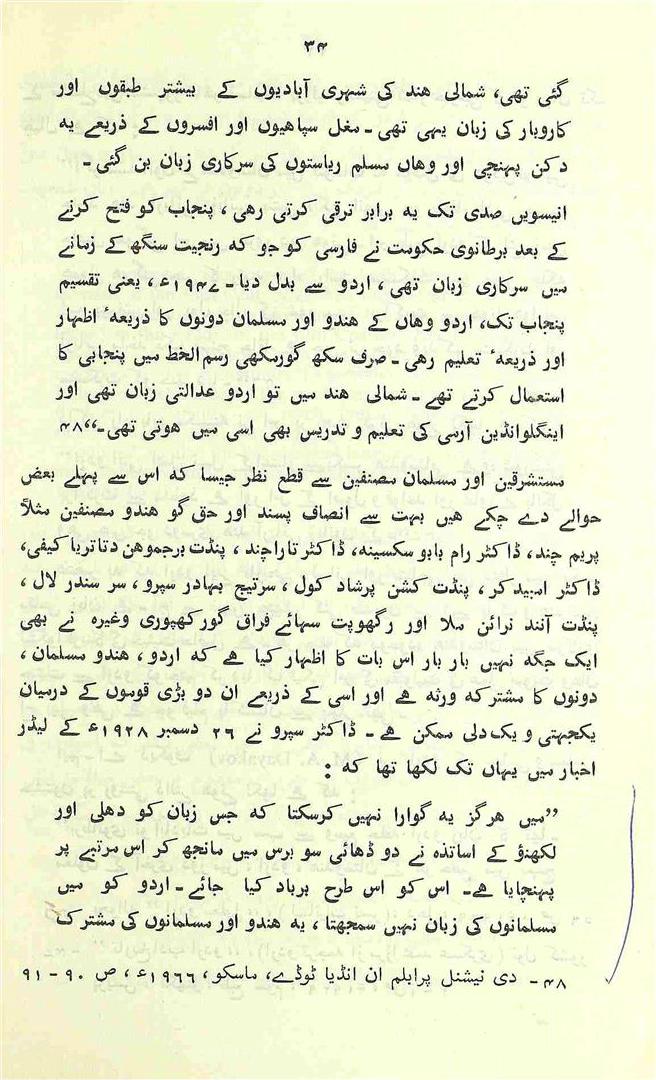 ۳۴
گئی تھی، شمالی ہند کی شہری آبادیوں کے بیشتر طبقوں اور
کاروبار کی زبان یہی تھی۔ مغل سپاہیوں اور افسروں کے ذریعے یہ
دکن پہنچی اور وہاں مسلم ریاستوں کی سرکاری زبان بن گئی۔
انیسویں صدی تک یہ برابر ترقی کرتی رہی، پنجاب کو فتح کرنے
کے بعد برطانوی حکومت نے فارسی کو جو کہ رنجیت سنگھ کے زمانے
میں سرکاری زبان تھی، اردو سے بدل دیا۔ ۱۹۴۷ء، یعنی تقسیم
پنجاب تک، اردو وہاں کے ہندو اور مسلمان دونوں کا ذریعہٴ اظہار
اور ذریعہٴ تعلیم رہی۔ صرف سکھ گورمکھی رسم الخط میں پنجابی کا
استعمال کرتے تھے۔ شمالی ہند میں تو اردو عدالتی زبان تھی اور
اینگلوانڈین آرمی کی تعلیم و تدریس بھی اسی میں ہوتی تھی۔“۴۸
مستشرقین اور مسلمان مصنفین سے قطع نظر جیسا کہ اس سے پہلے بعض
حوالے دے چکے ہیں بہت سے انصاف پسند اور حق گو ہندو مصنفین مثلاً
پریم چند، ڈاکٹر رام بابو سکسینہ، ڈاکٹر تارا چند، پنڈت برجموہن دتاتریا کیفی،
ڈاکٹر امبیدکر، پنڈت کشن پرشاد کول، سرتیج بہادر سپرو، سر سندر لال،
پنڈت آنند نرائن ملا اور رگھوپت سہائے فراق گورکھپوری وغیرہ نے بھی
ایک جگہ نہیں بار بار اس بات کا اظہار کیا ہے کہ اردو، ہندو مسلمان،
دونوں کا مشترکہ ورثہ ہے اور اسی کے ذریعے ان دو بڑی قوموں کے درمیان
یکجہتی و یک دلی ممکن ہے۔ ڈاکٹر سپرو نے ۲۶ دسمبر ۱۹۲۸ء کے لیڈر
اخبار میں یہاں تک لکھا تھا کہ :
”میں ہرگز یہ گوارا نہیں کرسکتا کہ جس زبان کو دہلی اور
لکھنؤ کے اساتذہ نے دو ڈھائی سو برس میں مانجھ کر اس مرتبے پر
پہنچایا ہے۔ اس کو اس طرح برباد کیا جائے۔ اردو کو میں
مسلمانوں کی زبان نہیں سمجھتا، یہ ہندو اور مسلمانوں کی مشترک
۴۸۔ دی نیشنل پرابلم ان انڈیا ٹوڈے، ماسکو، ۱۹۶۶ء، ص ۹۰-۹۱